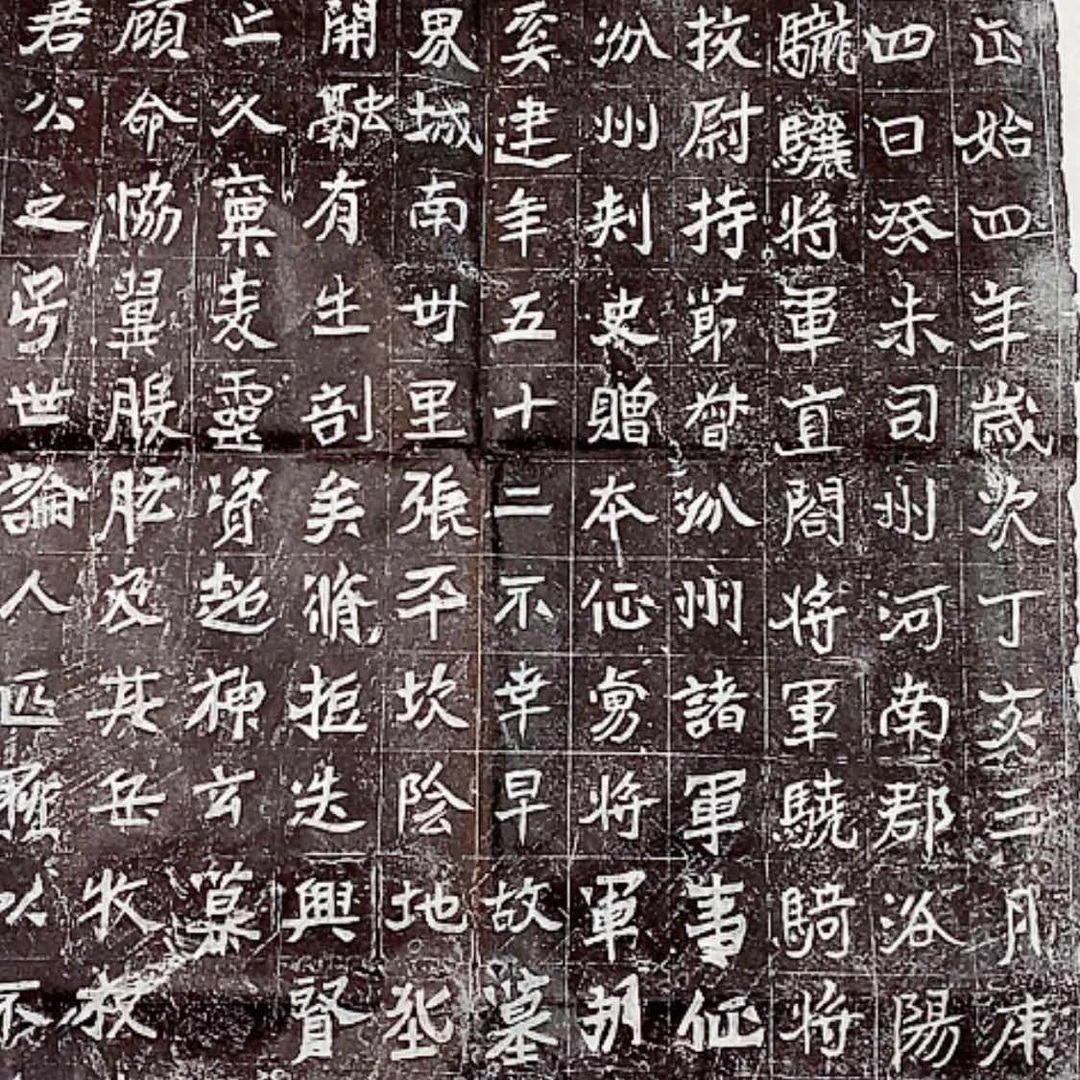 正始四年歲次丁亥三月庚
四日癸未司州河南郡洛陽
䮾驤將軍直閤將軍驍騎將
挍尉持節督汾州諸軍事征
汾州刾史贈本征虜將軍胡
奚建年五十二不幸早故墓
界城南卅里張平坎陰地
開融有生剖矣脩拒迭興賢
久稟靈資超神玄
顧命恊翼股肱及其岳牧
君公之号世論人匹以不